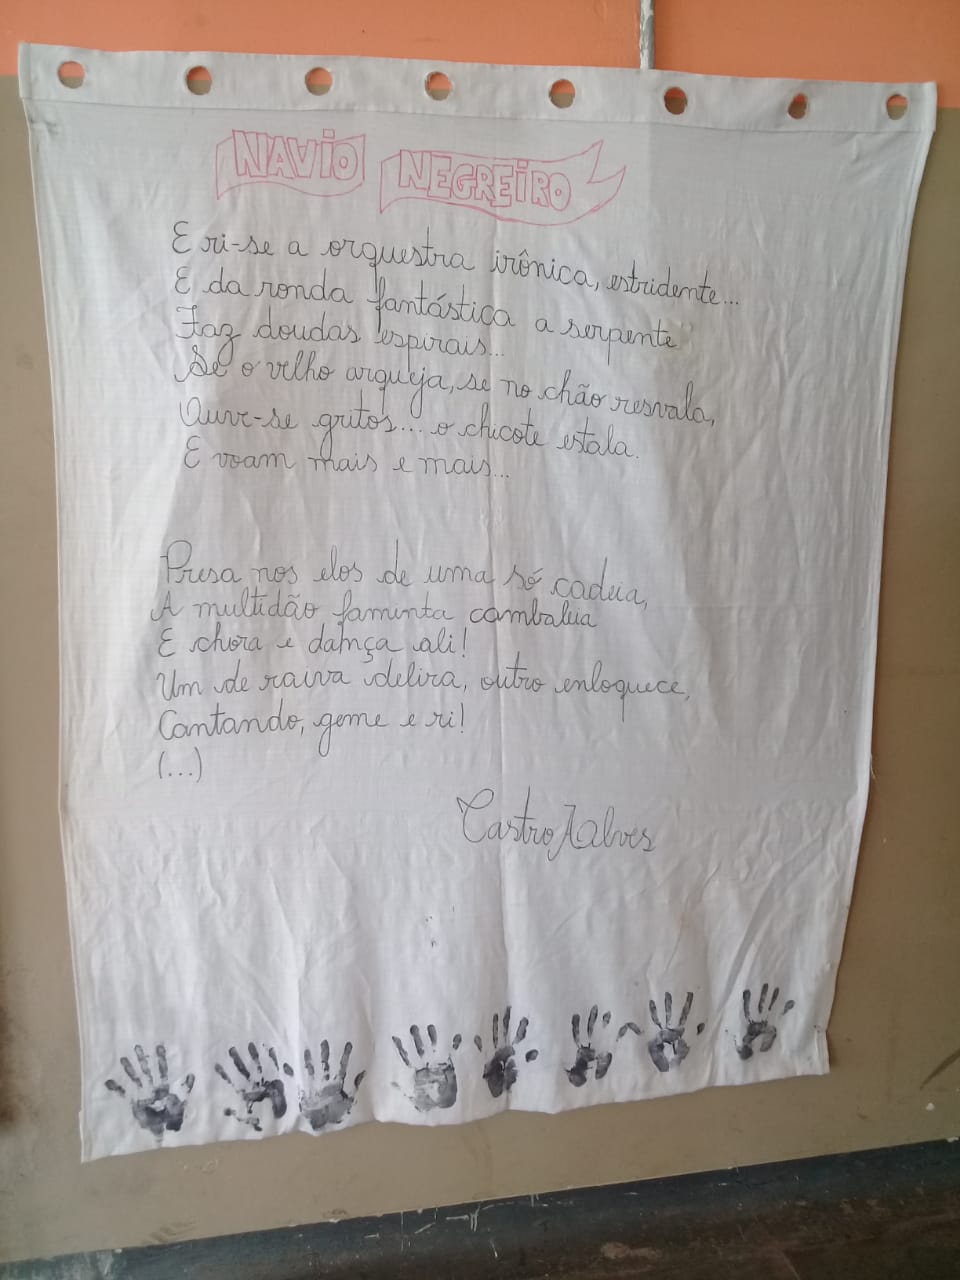 NAVIO NEGREIRO
E ri-se a orquestra irônica, estridente...
E da ronda fantástica a serpente
Faz doudas espirais...
Se o velho arqueja, se no chão resvala,
Ouve-se gritos... o chicote estala.
E voam mais e mais...
Presa nos elos de uma só cadeia,
A multidão faminta cambaleia
E chora e dança ali!
Um de raiva delira, outro enloquece,
Cantando, geme e ri!
(...)
Castro Alves